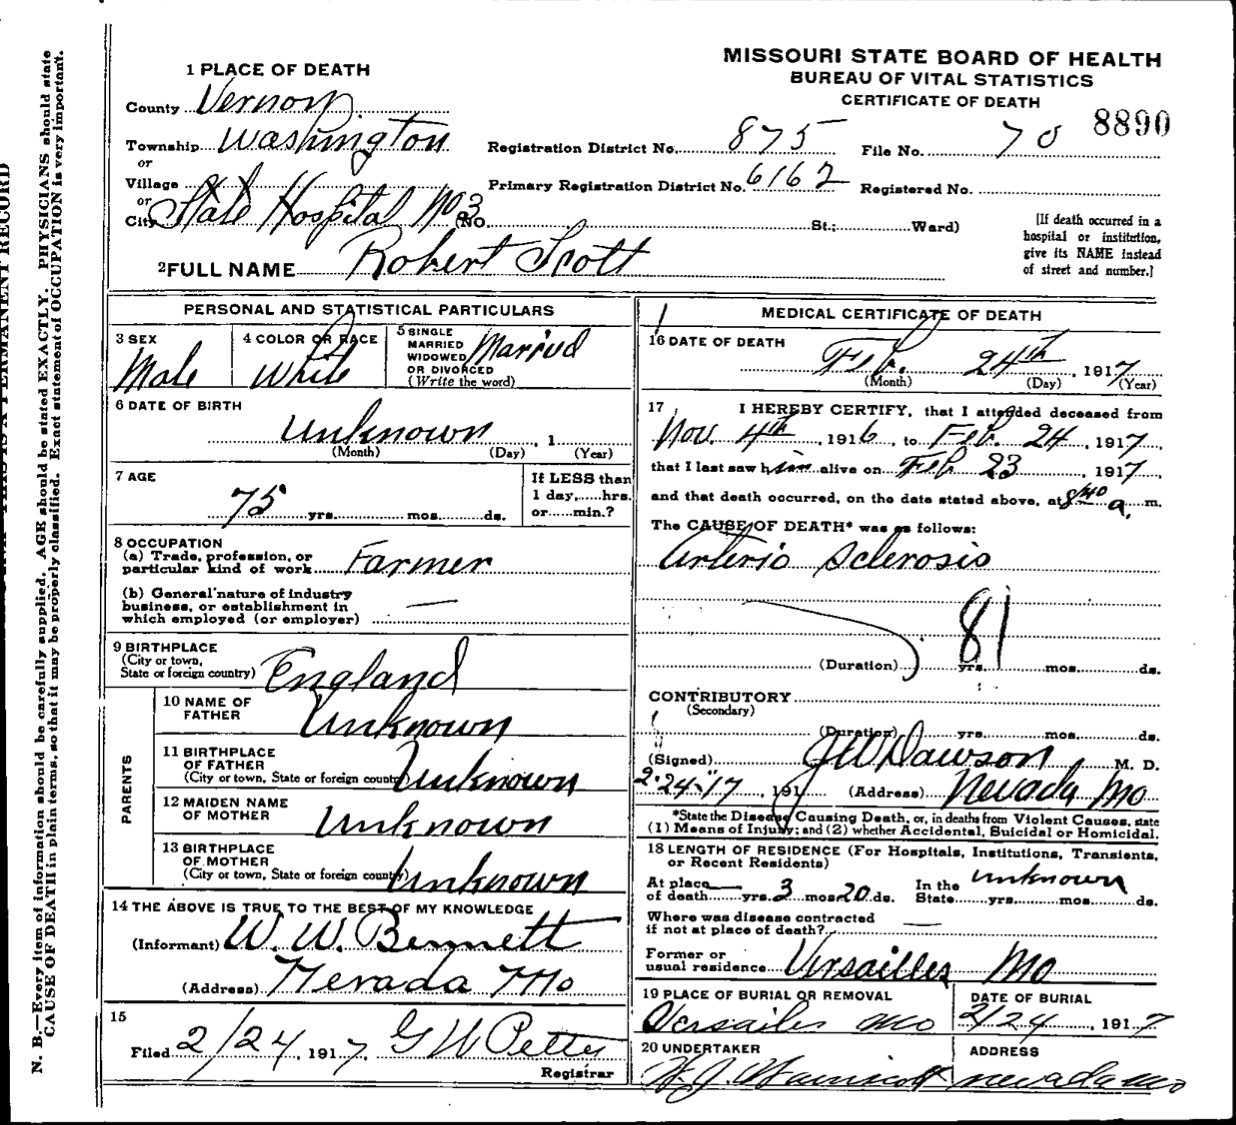 MISSOURI STATE BOARD OF HEALTH
BUREAU OF VITAL STATISTICS
CERTIFICATE OF DEATH
8890
1 PLACE OF DEATH
County Vernon
Township Washington
or
Village
or
City State Hospital No 3 (No. St.; Ward)
Registration District No. 875 File No. 70
Primary Registration District No. 6162 Registered No.
[If death occurred in a hospital or institution, give its NAME instead of street and number.]
2 FULL NAME Robert Scott
PERSONAL AND STATISTICAL PARTICULARS
3 SEX
Male
4 COLOR OR RACE
White
5 SINGLE
MARRIED
WIDOWED
OR DIVORCED
(Write the word)
Married
6 DATE OF BIRTH
Unknown , 1
(Month) (Day) (Year)
7 AGE
75 yrs. mos. ds.
If LESS than
1 day,......hrs.
or......min.?
8 OCCUPATION
(a) Trade, profession, or
particular kind of work Farmer
(b) General nature of industry
business, or establishment in
which employed (or employer) —
9 BIRTHPLACE
(City or town,
State or foreign country) England
PARENTS
10 NAME OF
FATHER Unknown
11 BIRTHPLACE
OF FATHER
(City or town, State or foreign country) Unknown
12 MAIDEN NAME
OF MOTHER Unknown
13 BIRTHPLACE
OF MOTHER
(City or town, State or foreign country) Unknown
14 THE ABOVE IS TRUE TO THE BEST OF MY KNOWLEDGE
(Informant) W. W. Bennett
(Address) Nevada Mo
15
Filed 2/24, 1917, G W Petty
Registrar
MEDICAL CERTIFICATE OF DEATH
16 DATE OF DEATH
Feb. 24th , 1917
(Month) (Day) (Year)
17 I HEREBY CERTIFY, that I attended deceased from
Nov. 4th, 1916, to Feb. 24, 1917,
that I last saw him alive on Feb 23, 1917,
and that death occurred, on the date stated above, at 8 40 a. m.
The CAUSE OF DEATH* was as follows:
Arterio Sclerosis
81
(Duration) yrs. mos. ds.
CONTRIBUTORY
(Secondary)
(Duration) yrs. mos. ds.
(Signed) J W Dawson M. D.
2-24-17, 191 (Address) Nevada Mo
*State the Disease Causing Death, or, in deaths from Violent Causes, state
(1) Means of Injury; and (2) whether Accidental, Suicidal or Homicidal.
18 LENGTH OF RESIDENCE (For Hospitals, Institutions, Transients,
or Recent Residents)
At place
of death — yrs. 3 mos. 20 ds.
In the
State yrs. mos. ds.
Unknown
Where was disease contracted
if not at place of death? —
Former or
usual residence Versailles Mo
19 PLACE OF BURIAL OR REMOVAL
Versailes Mo
DATE OF BURIAL
2/24, 1917
20 UNDERTAKER
ADDRESS
Nevada Mo
N. B.—Every item of information should be carefully supplied. AGE should be stated EXACTLY. PHYSICIANS should state
CAUSE OF DEATH in plain terms, so that it may be properly classified. Exact statement of OCCUPATION is very important.